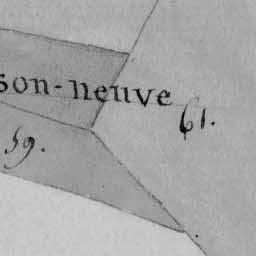 son-neuve
61.
59.